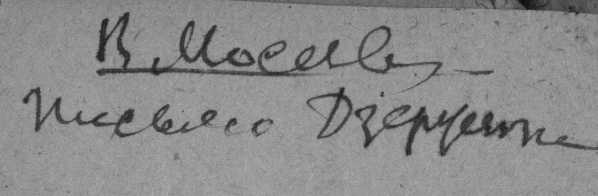 В Москву
Письмо Дзержинск